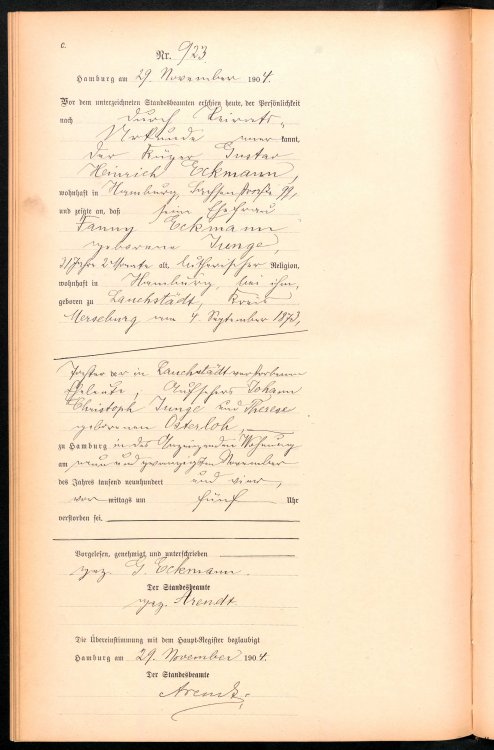 C.
Nr. 923
Hamburg am 29. November 1904.
Vor dem unterzeichneten Standesbeamten erschien heute, der Persönlichkeit
nach durch Heirats-
Urkunde anerkannt,
der Küper Gustav
Heinrich Eckmann,
wohnhaft in Hamburg, Sachsenstraße 91,
und zeigte an, daß seine Ehefrau
Fanny Eckmann
geborene Junge,
31 Jahre 2 Monate alt, lutherischer Religion,
wohnhaft in Hamburg, bei ihm,
geboren zu Lauchstädt, Kreis
Merseburg am 4. September 1873,
Tochter der in Lauchstädt verstorbenen
Eheleute, Aufsehers Johann
Christoph Junge und Therese
geborenen Osterloh,
zu Hamburg in des Anzeigenden Wohnung
am neun und zwanzigsten November
des Jahres tausend neunhundert und vier,
vor mittags um fünf Uhr
verstorben sei.
Vorgelesen, genehmigt und unterschrieben
gez. G. Eckmann.
Der Standesbeamte
gez. Arendt
Die Übereinstimmung mit dem Haupt-Register beglaubigt
Hamburg am 29. November 1904.
Der Standesbeamte
Arendt